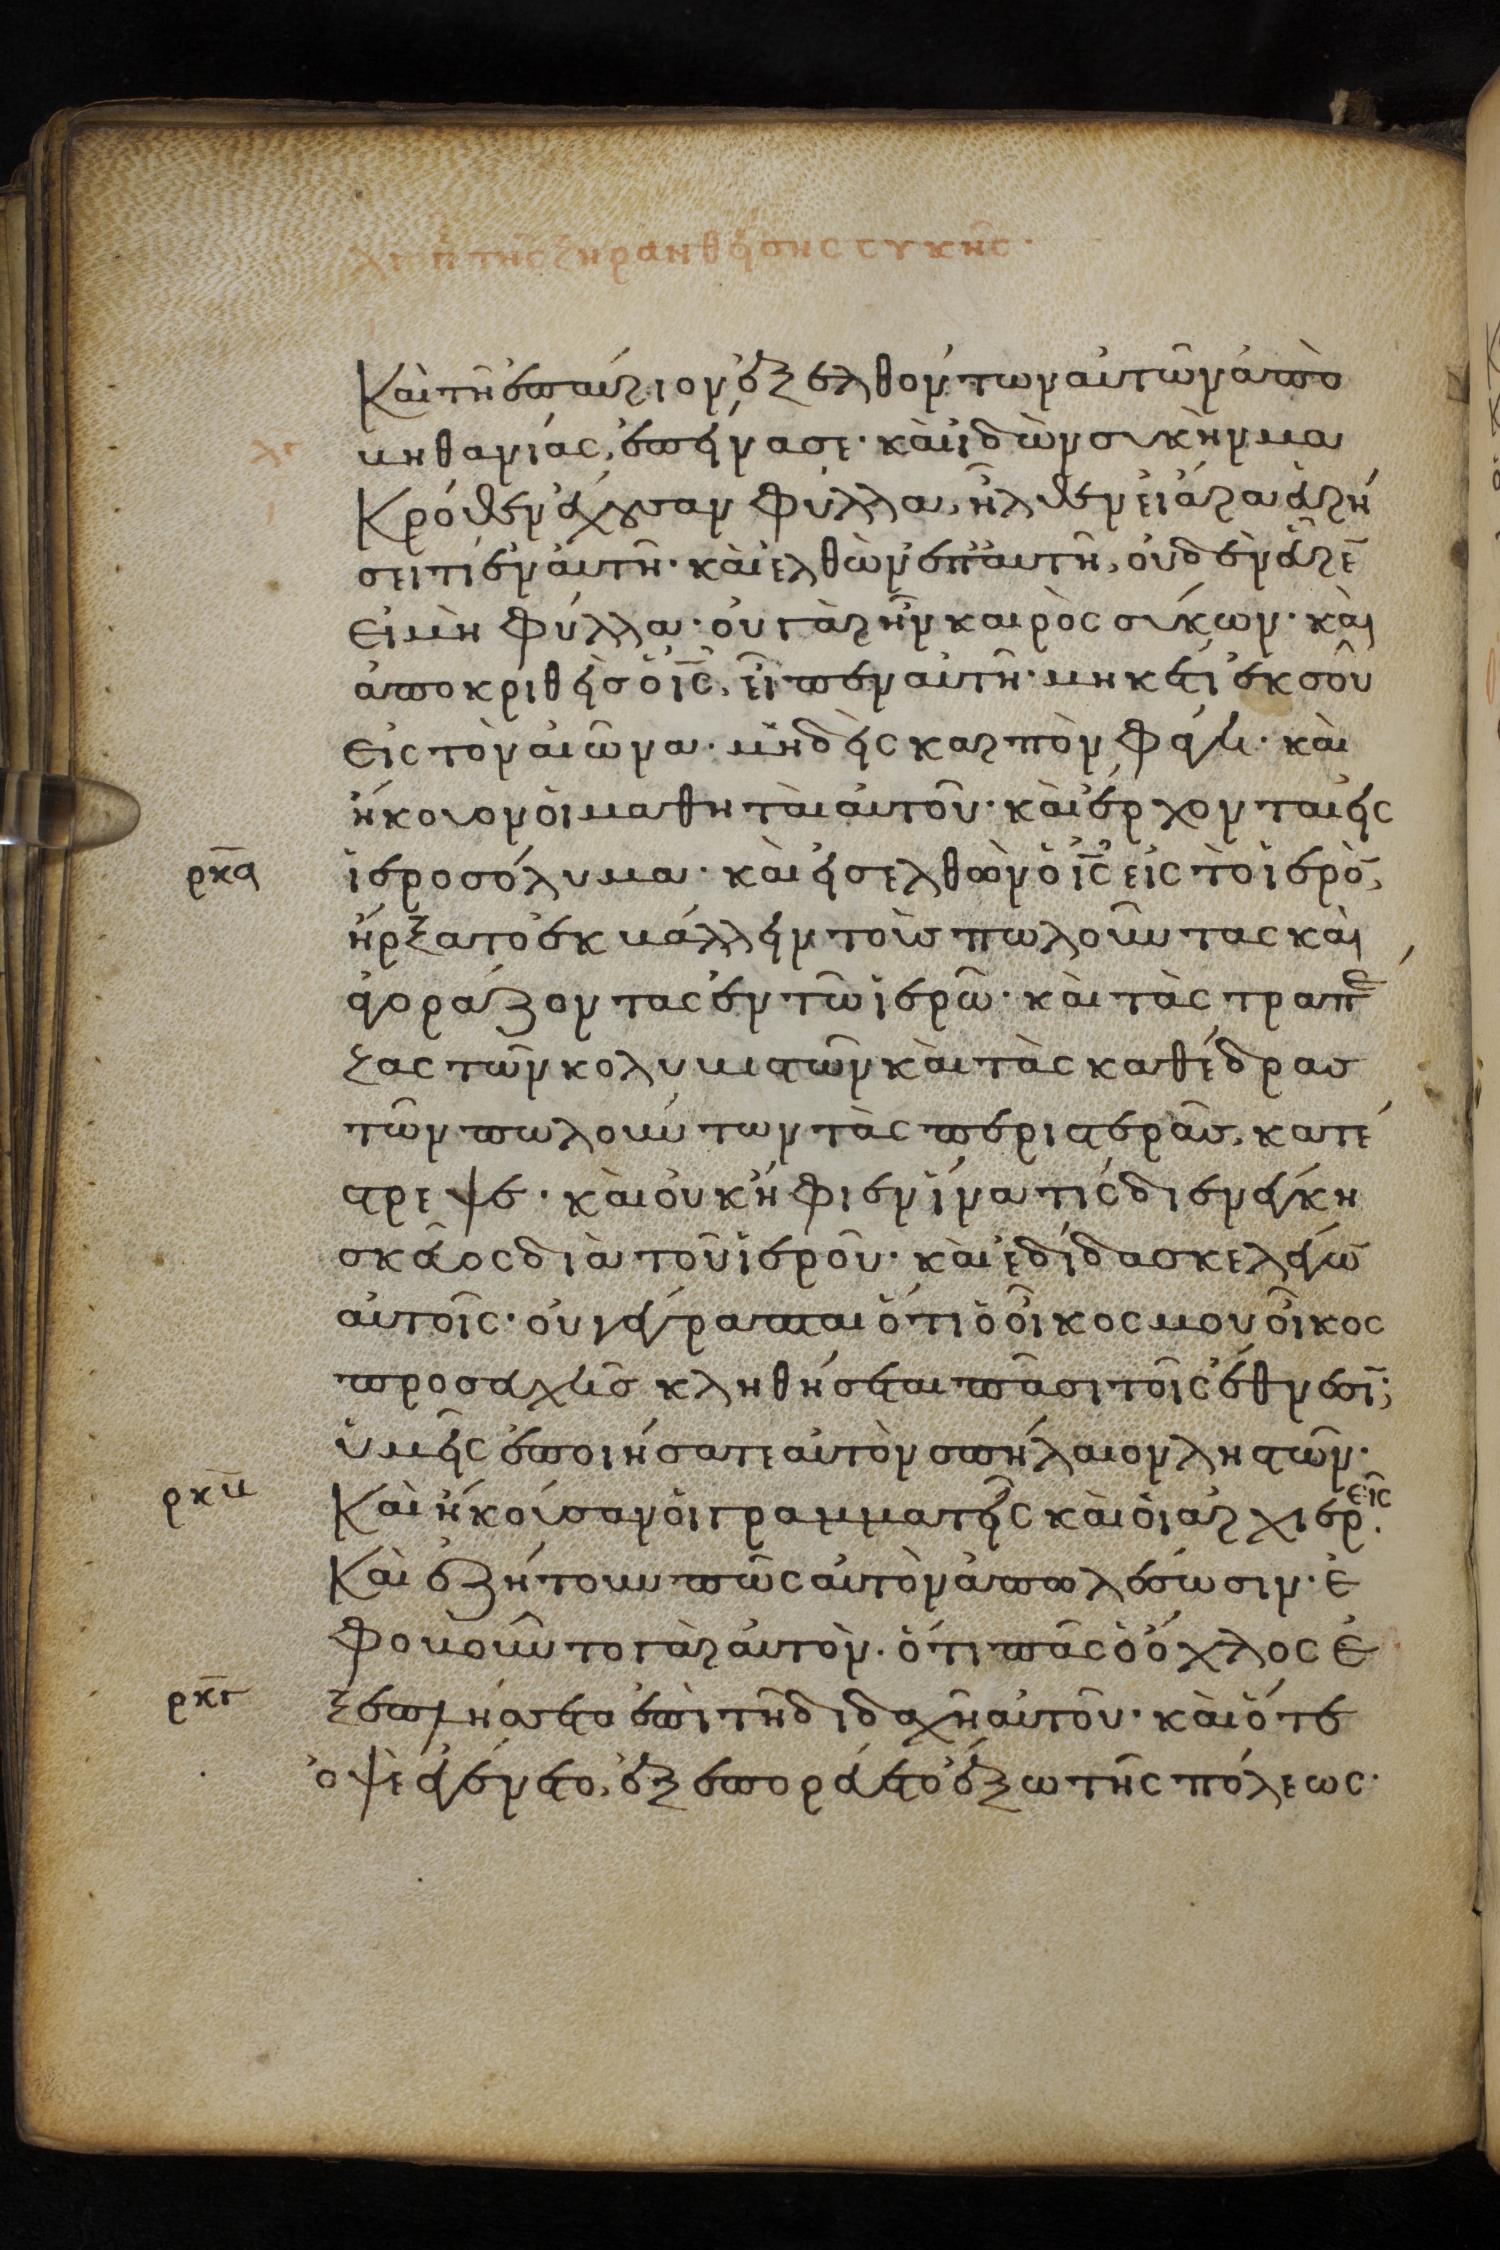 λγ π τῆς ξηρανθείσης συκῆς·
Καὶ τῆ ἐπαύριον ἐξελθόντων αὐτῶν ἀπὸ
λγ βηθανίας, ἐπείνασε· καὶ ἰδὼν συκὴν μα
κρόθεν ἔχουσαν φύλλα, ἦλθεν εἰ ἄρα εὑρή
σει τι ἐν αὐτῆ· καὶ ἐλθὼν ἐπ' αὐτῆ, οὐδὲν εὗρε̄
εἰ μὴ φύλλα· οὐ γὰρ ἦν καιρὸς σύκων· καὶ
ἀποκριθεὶς ὁ ις̄, εἶπεν αὐτῆ· μηκέτι ἐκ σοῦ
εἰς τὸν αἰῶνα· μηδεὶς καρπὸν φάγη· καὶ
ἤκουον οἱ μαθηταὶ αὐτοῦ· καὶ ἔρχονται εἰς
ρκ̄α ἱεροσόλυμα· καὶ εἰσελθὼν ὁ ις̄ εἰς τὸ ἱερὸ̄,
ἤρξατο ἐκβάλλειν τοὺς πωλοῦντας καὶ
ἀγοράζοντας ἐν τῶ ἱερῶ· καὶ τὰς τραπέ
ζας τῶν κολυβιστῶν καὶ τὰς καθέδρας
τῶν πωλούντων τὰς περιστερὰς, κατέ
στρεψε· καὶ οὐκ ἤφιεν ἵνα τίς διενέγκη
σκεῦος διὰ τοῦ ἱεροῦ· καὶ ἐδίδασκε λέγων
αὐτοῖς· οὐ γέγραπται ὅτι ὁ οἶκος μου οἶκος
προσευχῆς κληθήσεται πᾶσι τοῖς ἔθνεσῑ;
ὑμεῖς ἐποιήσατε αὐτὸν σπήλαιον ληστῶν·
ρκ̄β Καὶ ἤκουσαν οἱ γραμματεῖς καὶ οἱ ἀρχιερεῖς.
Καὶ ἐζήτουν πῶς αὐτὸν ἀπολέσωσιν· ἐ
φοβοῦντο γὰρ αὐτὸν· ὅτι πᾶς ὁ ὄχλος ἐ
ρκ̄γ ξεπλήσσετο ἐπὶ τῆ διδαχῆ αὐτοῦ· καὶ ὅτε
ὀψὲ ἐγένετο, ἐξεπορεύετο ἔξω τῆς πόλεως·